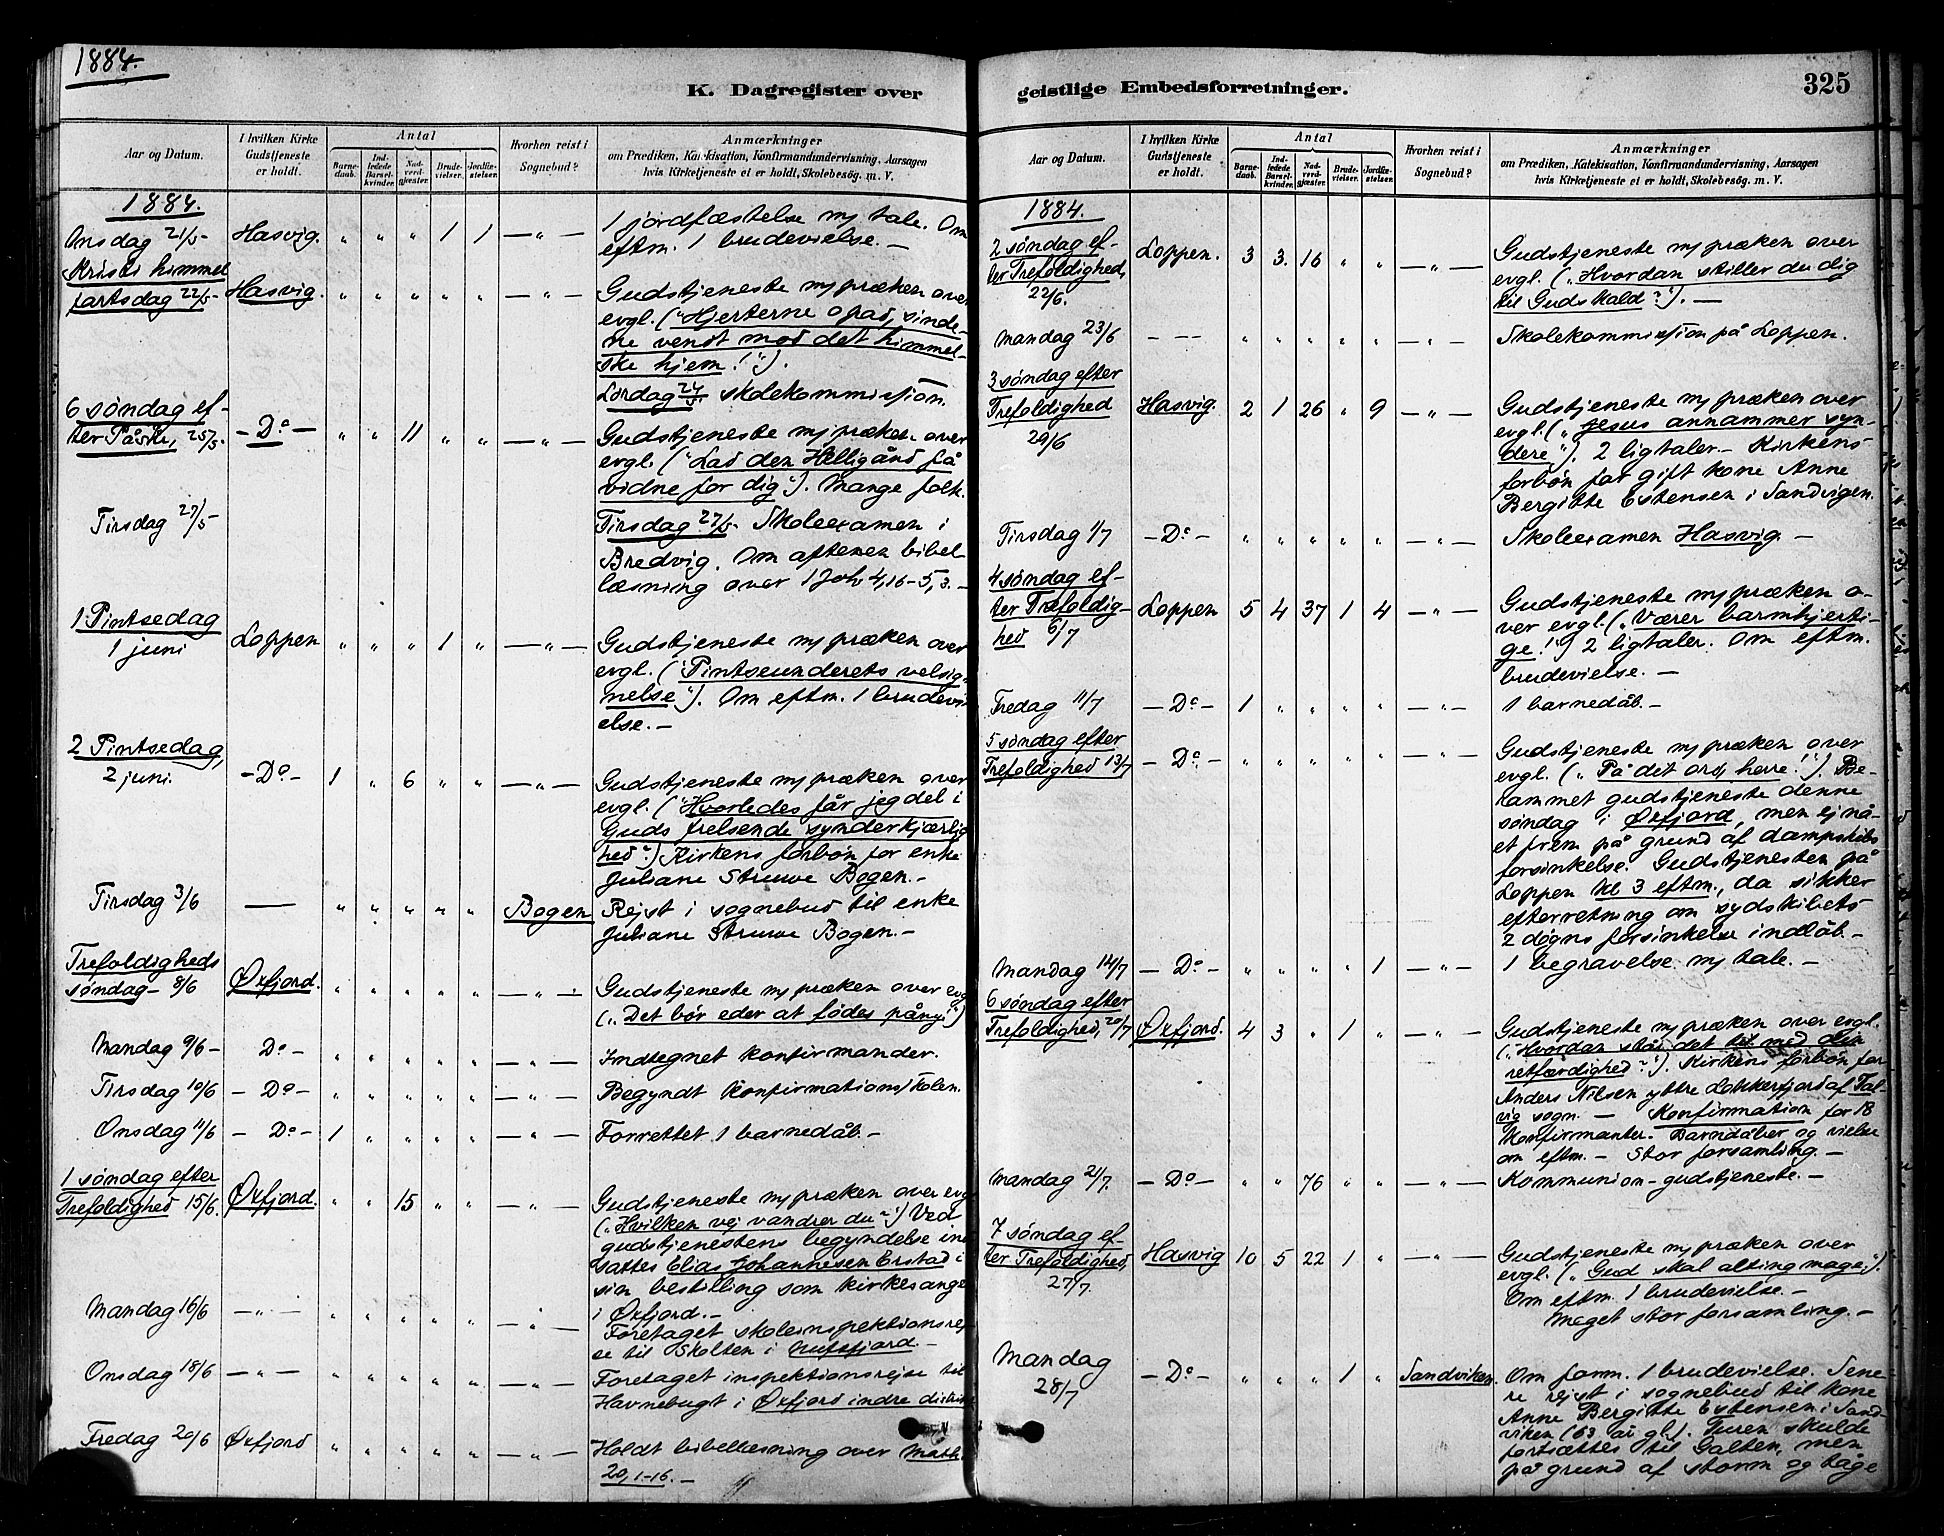 1884.
K. Dagregister over
Aar og Datum.
I hvilken Kirke Gudstjeneste er holdt.
Antal
Barnedaab.
Indledede Barselkvinder.
Nadverdgjæster.
Brudevielser.
Jordfæstelser.
Hvorhen reist i Sognebud?
Anmærkninger
om Prædiken, Katekisation, Konfirmandundervisning, Aarsagen
hvis Kirketjeneste ei er holdt, Skolebesøg. m. V.
1884.
Onsdag 21/5 Hasvig. " " " 1 1 — " — 1 jordfæstelse m/ tale. Om
eftm. 1 brudevielse. —
Kristi himmel
fartsdag 22/5 Hasvig. " " " " " — " — Gudstjeneste m/ præken over
evgl. ("Hjerterne opad, sinde-
ne vendt mod det himmel-
ske hjem!").
Lørdag 24/5 skolekommission.
6 søndag ef-
ter Påske, 25/5. — Do — " " 11 " " — " — Gudstjeneste m/ præken over
evgl. ("Lad den Helligånd få
vidne for dig"). Mange folk.
Tirsdag 27/5
Tirsdag 27/5. Skoleexamen i
Bredvig. Om aftenen bibel-
læsning over 1 Joh 4,16-5,3. —
1 Pintsedag
1 juni Loppen " " " 1 " — " — Gudstjeneste m/ præken over
evgl. ("Pintseunderets velsig-
nelse"). Om eftm. 1 brudevi
else. —
2 Pintsedag,
2 juni — Do — 1 " 6 " " — " — Gudstjeneste m/ præken over
evgl. ("Hvorledes får jeg del i
Guds frelsende synderkjærlig
hed?") Kirkens forbøn for enke
Juliane Struwe Bogen. —
Tirsdag 3/6 — " " " " " Bogen Rejst i sognebud til enke
Juliane Struwe Bogen. —
Trefoldigheds
søndag — 8/6 Øxfjord. " " " " " — " — Gudstjeneste m/ præken over evg
("Det bør eder at fødes påny.")
Mandag 9/6 — Do — " " " " " — " — Indtegnet konfirmander.
Tirsdag 10/6 — Do — " " " " " — " — Begyndt konfirmationsskolen.
Onsdag 11/6 — Do — 1 " " " " — " — Forrettet 1 barnedåb. —
1 søndag efter
Trefoldighed 15/6. Øxfjord. " " 15 " " — " — Gudstjeneste m/ præken over evg
("Hvilken vej vandrer du?") Ved
gudstjenestens begyndelse ind
sattes Elias Johannesen Erstad i
sin bestilling som kirkesanger
i Øxfjord. —
Mandag 16/6 — " — " " " " " — " — Foretaget skoleinspektionsrej
se til skolten i Nufsfjord. —
Onsdag 18/6 — " — " " " " " — " — Foretaget inspektionsrejse til
Havnebugt i Øxfjord indre distrikt
Fredag 20/6 Øxfjord " " " " " — " — Holdt bibellæsning over Matth.
20,1-16. —
geistlige Embedsforretninger.
325
Aar og Datum.
I hvilken Kirke Gudstjeneste er holdt.
Antal
Barnedaab.
Indledede Barselkvinder.
Nadverdgjæster.
Brudevielser.
Jordfæstelser.
Hvorhen reist i Sognebud?
Anmærkninger
om Prædiken, Katekisation, Konfirmandundervisning, Aarsagen
hvis Kirketjeneste ei er holdt, Skolebesøg. m. V.
1884.
2 søndag ef-
ter Trefoldighed,
22/6. Loppen. 3 3. 16 " " — " — Gudstjeneste m/ præken over
evgl. ("Hvordan stiller du dig
til Guds kald?"). —
Mandag 23/6 — — — " " " " " — " — Skolekommission på Loppen.
3 søndag efter
Trefoldighed
29/6 Hasvig. 2 1 26 " 9 — " — Gudstjeneste m/ præken over
evgl. ("Jesus annammer syn-
dere"). 2 ligtaler. — Kirkens
forbøn for gift kone Anne
Bergitte Estensen i Sandvigen.
Tirsdag 1/7 — Do — " " " " " — " — Skoleexamen Hasvig. —
4 søndag ef-
ter Trefoldig-
hed 6/7 Loppen 5 4 37 1 4 — " — Gudstjeneste m/ præken o-
ver evgl. ("Værer barmhjerti-
ge!") 2 ligtaler. Om eftm.
brudevielse. —
Fredag 11/7 — Do — 1 " " " " — " — 1 barnedåb. —
5 søndag efter
Trefoldighed 13/7 — Do — " " " " " — " — Gudstjeneste m/ præken over
evgl. ("På dit ord, herre!"). Be-
rammet gudstjeneste denne
søndag i Øxfjord, men ej nå-
et frem på grund af dampskibs
forsinkelse. Gudstjenesten på
Loppen kl 3 eftm., da sikker
efterretning om sydskibets
2 døgns forsinkelse indløb. —
Mandag 14/7 — Do — " " " " 1 — " — 1 begravelse m/ tale. —
6 søndag efter
Trefoldighed, 20/7 Øxfjord. 4 3 " 1 " — " — Gudstjeneste m/ præken over evgl.
("Hvordan står det til med din
retfærdighed?"). Kirkens forbøn for
Anders Nilsen yttre Lokkerfjord af Tal-
vig sogn. — Konfirmation for 18
konfirmanter. Barndåber og vielse
om eftm. — Stor forsamling. —
Mandag 21/7. — Do — " " 76 " " — " — Kommunion-gudstjeneste. —
7 søndag ef-
ter Trefoldighed,
27/7. Hasvig 10 5 22 1 " — " — Gudstjeneste m/ præken over
evgl. ("Gud skal alting mage,").
Om eftm. 1 brudevielse. —
Meget stor forsamling. —
Mandag
28/7 — Do — " " " 1 " Sandviken. Om form. 1 brudevielse. Sene-
re rejst i sognebud til kone
Anne Bergitte Estensen i Sand-
viken (63 år gl.). Turen skulde
fortsættes til Galten, men
på grund af storm og tåge